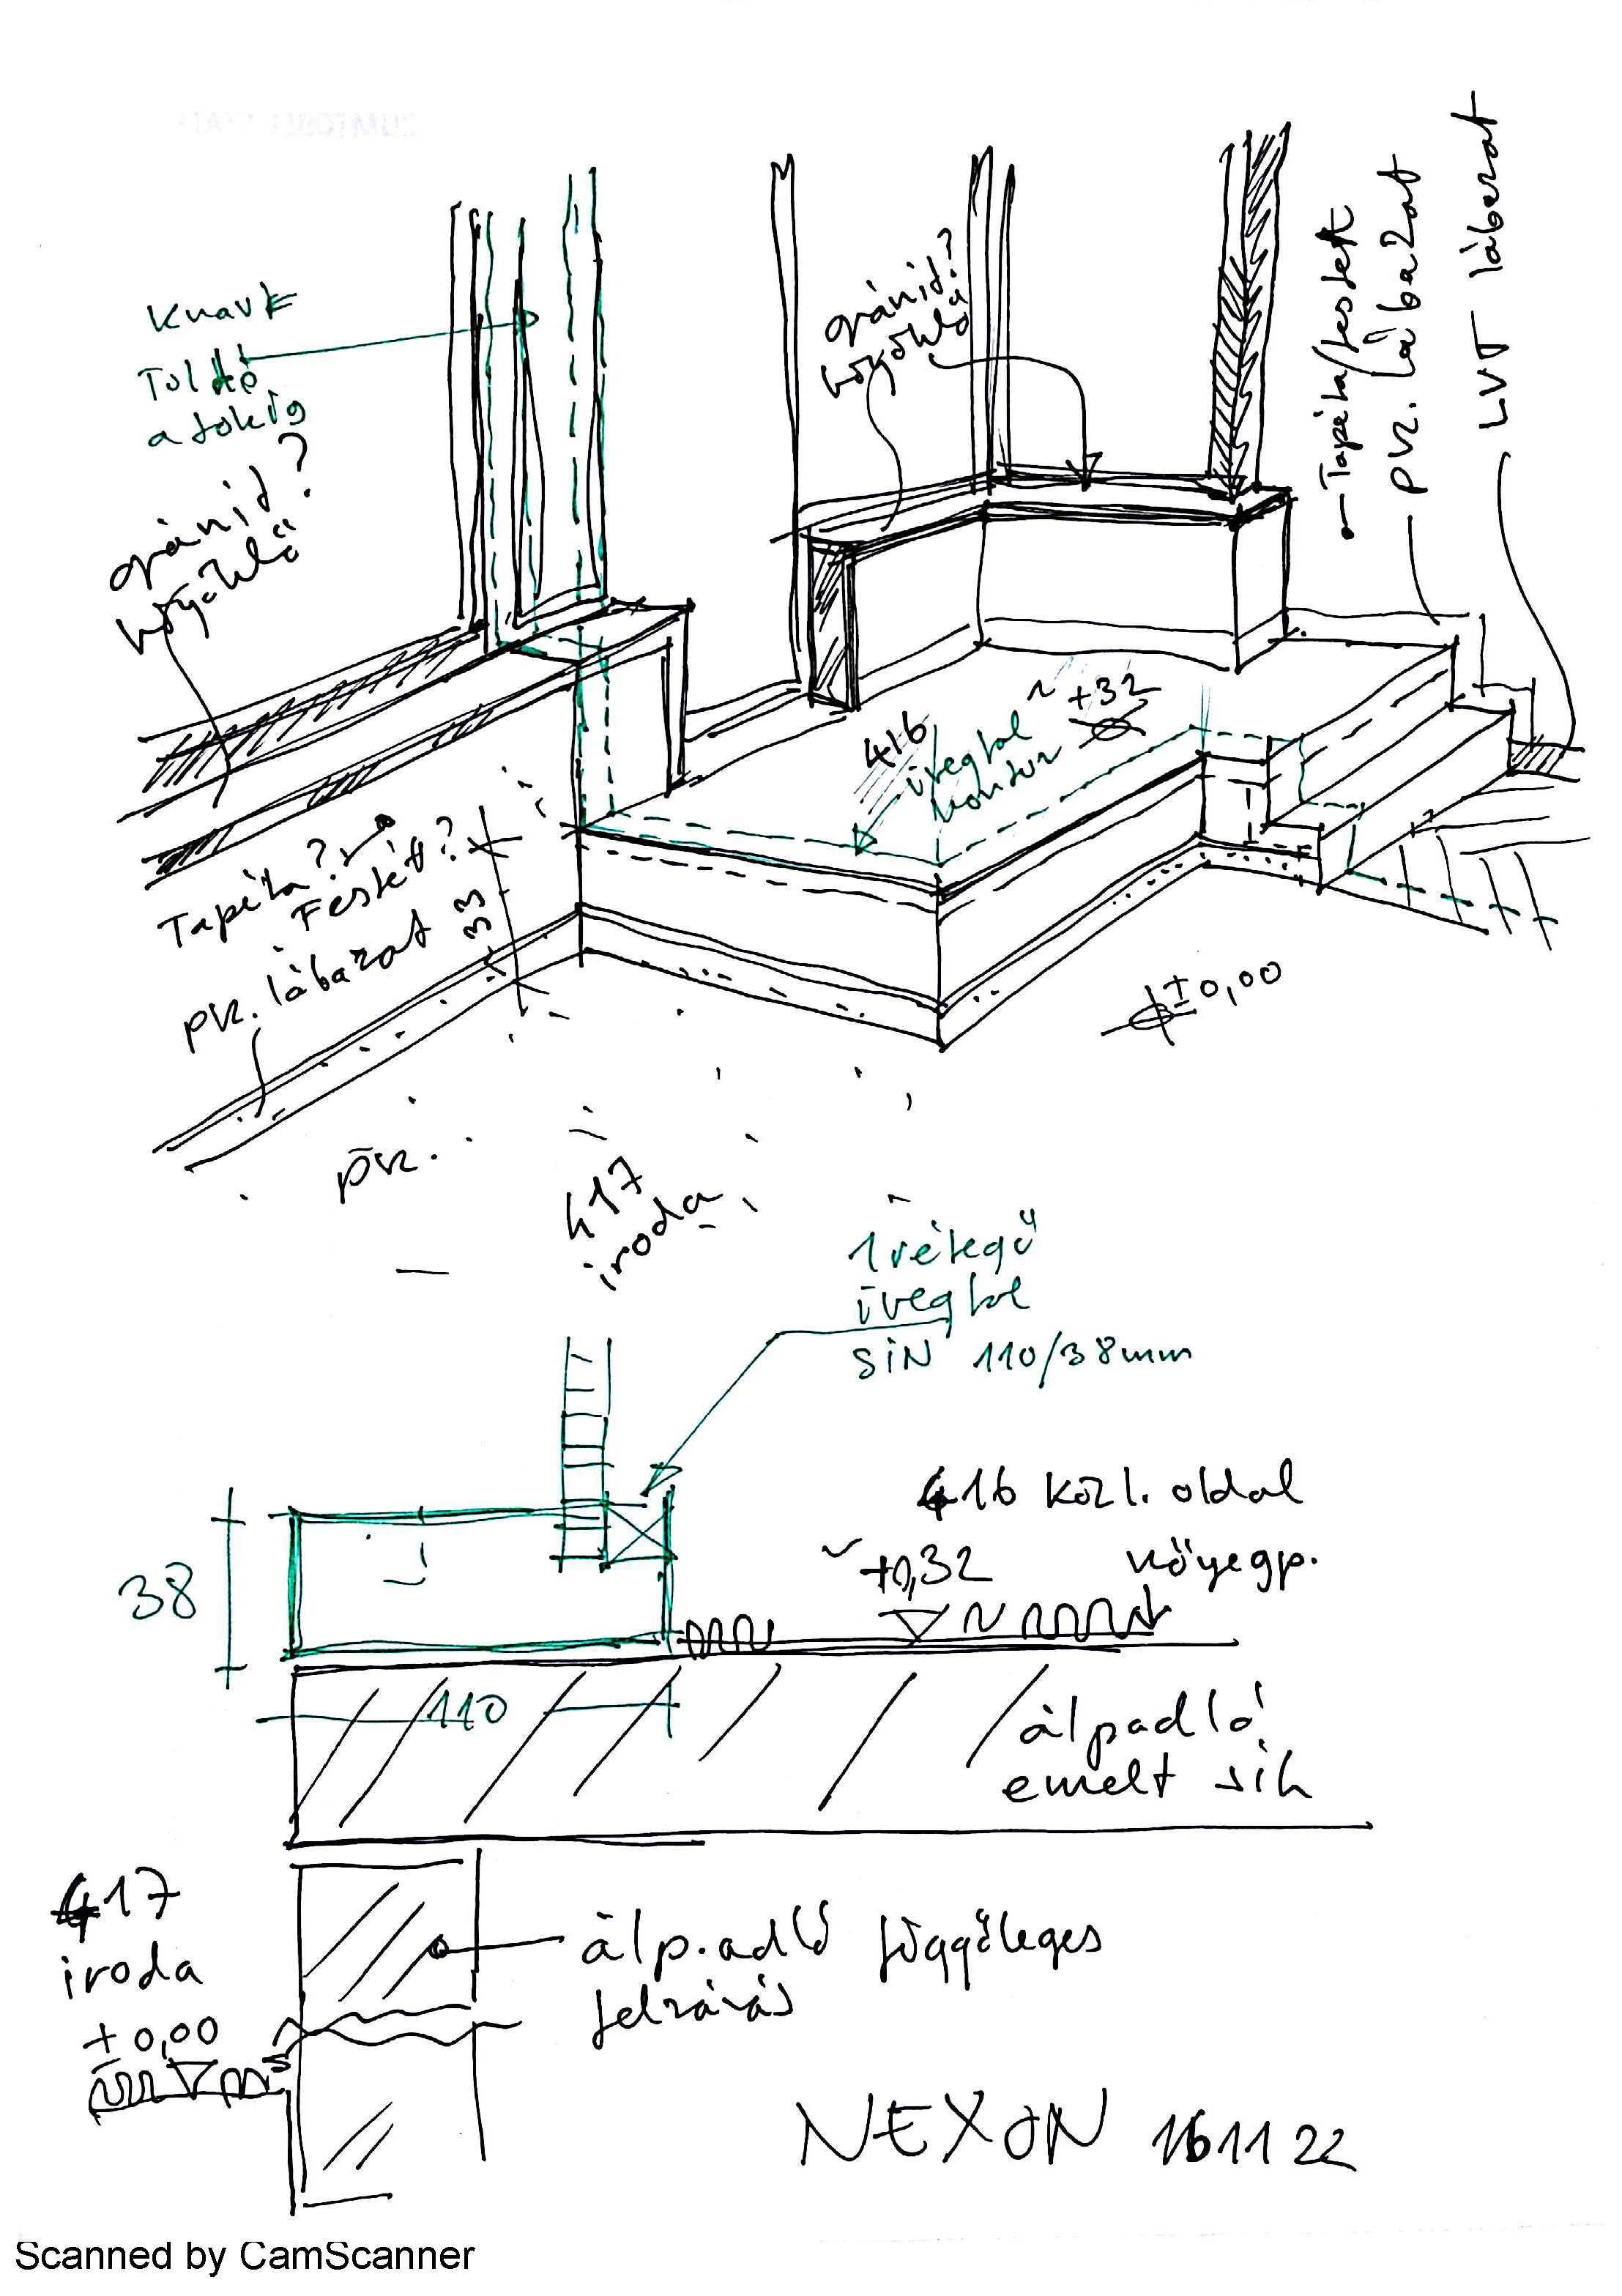 Knauf
Toldó
a tokig
gránit?
könyöklő
gránit?
könyöklő
Tapéta/festett
pvz. lábazat
LVT lábazat
~ +32
416
üvegfal
kontúr
Tapéta?
Festett?
pvz. lábazat
33
±0,00
pvz.
417
iroda
1 rétegű
üvegfal
SÍN 110/38mm
416 közl. oldal
~ +0,32
38
110
álpadló
emelt sík
417
iroda
±0,00
álpadló függőleges
felzárás
NEXON 161122
Scanned by CamScanner